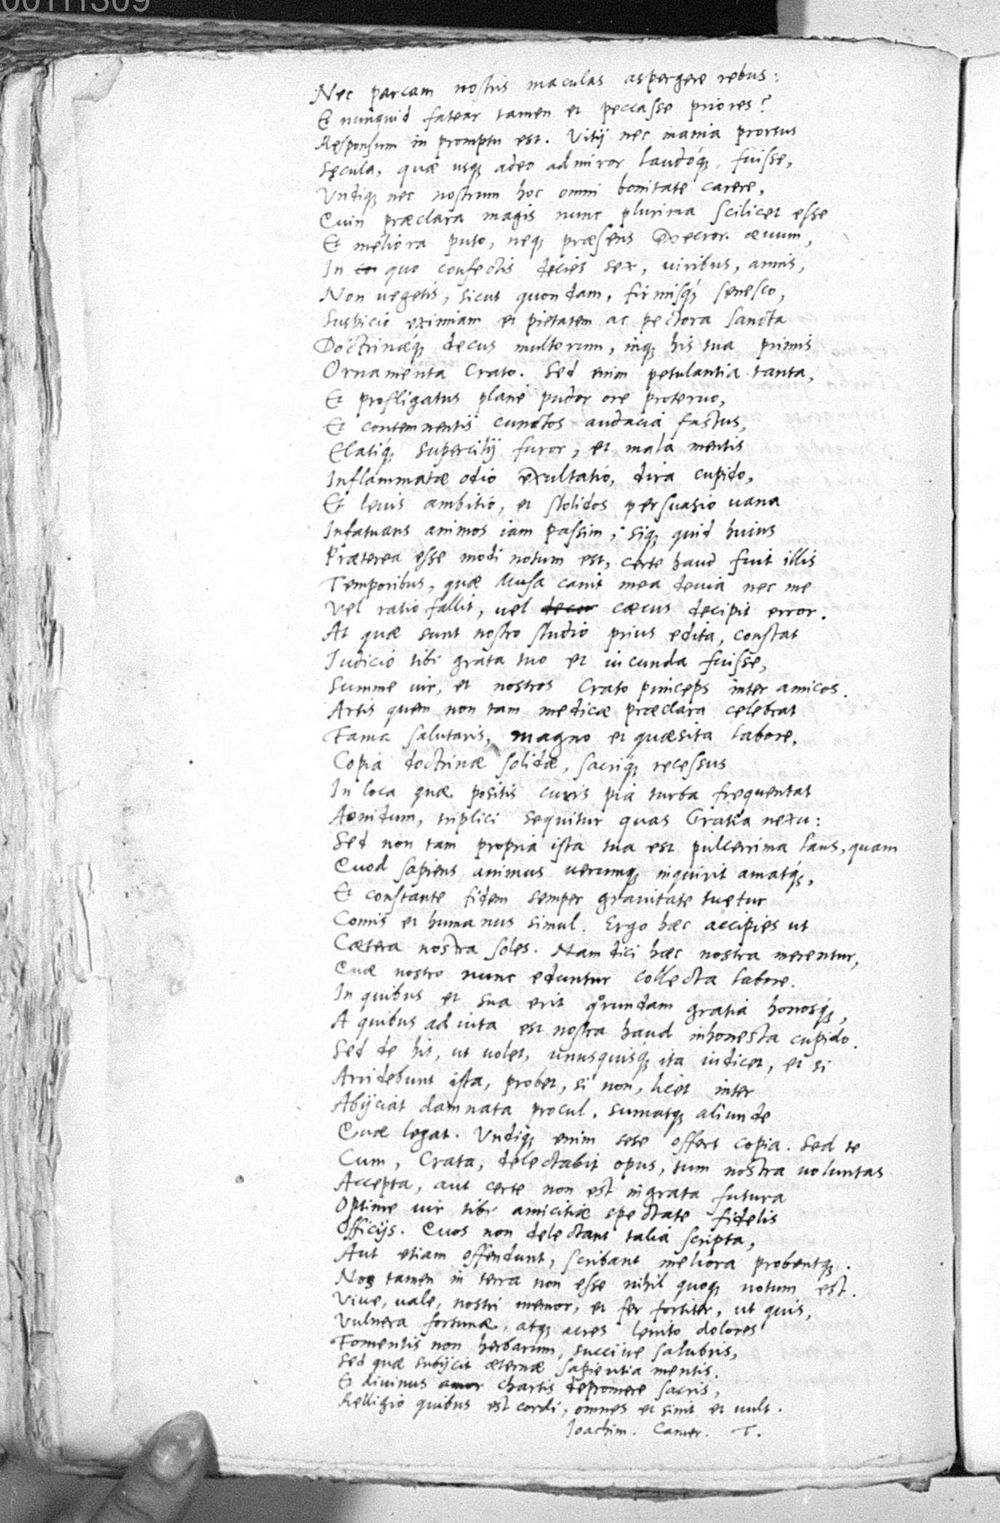 00111309
Nec parcam nostris maculas aspergere rebus:
Et nunquid fatear tamen et peccasse priores?
Responsum in promptu est. Vitij nec mania prorsus
Secula, quæ usq; adeo admiror laudoq;, fuisse,
Undiq; nec nostrum hoc omni bonitate carere,
Quin præclara magis nunc plurima scilicet esse
Et meliora puto, neq; præsens execror ævum,
In quo confectis decies sex, viribus, annis,
Non vegetis, sicut quondam, firmisq; senesco,
Suspicio eximiam et pietatem ac pectora sancta
Doctrinæq; decus multorum, inq; his tua primis
Ornamenta Crato. Sed enim petulantia tanta,
Et profligatus plane pudor ore protervo,
Et contemnentis cunctos audacia fastus,
Elatiq; supercilij furor, et mala mentis
Inflammatæ odio exultatio, dira cupido,
Et levis ambitio, et stolidos persuasio vana
Infatuans animos iam passim; siq; quid huius
Præterea esse modi notum est, certe haud fuit illis
Temporibus, quæ Musa canit mea devia nec me
Vel ratio fallit, vel cæcus decipit error.
At quæ sunt nostro studio prius edita, constat
Iudicio tibi grata tuo et iucunda fuisse,
Summe vir, et nostros Crato princeps inter amicos.
Artis quem non tam medicæ præclara celebrat
Fama salutaris, magno et quæsita labore,
Copia doctrinæ solidæ, sacriq; recessus
In loca quæ positis curis pia turba frequentat
Aonidum, triplici sequitur quas Gratia nexu:
Sed non tam propria ista tua est pulcerrima laus, quam
Quod sapiens animus verumq; inquirit amatq;,
Et constante fidem semper gravitate tuetur
Comis et humanus simul. Ergo hæc accipies ut
Cætera nostra soles. Nam dici hæc nostra merentur,
Quæ nostro nunc eduntur collecta labore.
In quibus et sua erit quorundam gratia honosq;,
A quibus adiuta est nostra haud inhonesta cupido.
Sed de his, ut volet, unusquisq; ita iudicet, et si
Arridebunt ista, probet, si non, licet inter
Abijciat damnata procul, sumatq; aliunde
Quæ legat. Undiq; enim sese offert copia. Sed te
Cum, Crato, delectabit opus, tum nostra voluntas
Accepta, aut certe non est ingrata futura
Optime vir tibi amicitiæ spectate fidelis
Officijs. Quos non delectant talia scripta,
Aut etiam offendunt, scribant meliora probentq;.
Nos tamen in terra non esse nihil quoq; notum est.
Vive, vale, nostri memor, et fer fortiter, ut quis,
Vulnera fortunæ, atq; acres lenito dolores
Fomentis non herbarum, succive salubris,
Sed quæ subijcit æternæ sapientia mentis.
Et divinus amor chartis depromere sacris,
Relligio quibus est cordi, omnes et sinit et vult.
Ioachim. Camer. T.